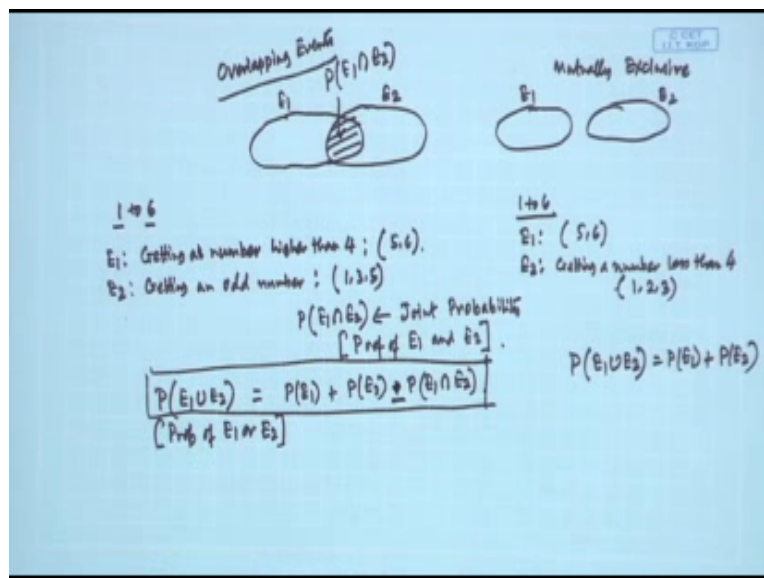 © CET
I.I.T. KGP
Overlapping Events
P(E1∩E2)
E1
E2
1 to 6
E1: Getting at number higher than 4 ; (5,6).
E2: Getting an odd number : (1,3,5)
P(E1∩E2) ← Joint Probability
[Prob of E1 and E2].
P(E1∪E2) = P(E1) + P(E2) - P(E1∩E2)
[Prob of E1 or E2]
Mutually Exclusive
E1
E2
1 to 6
E1: (5,6)
E2: Getting a number less than 4
(1,2,3)
P(E1∪E2) = P(E1) + P(E2)